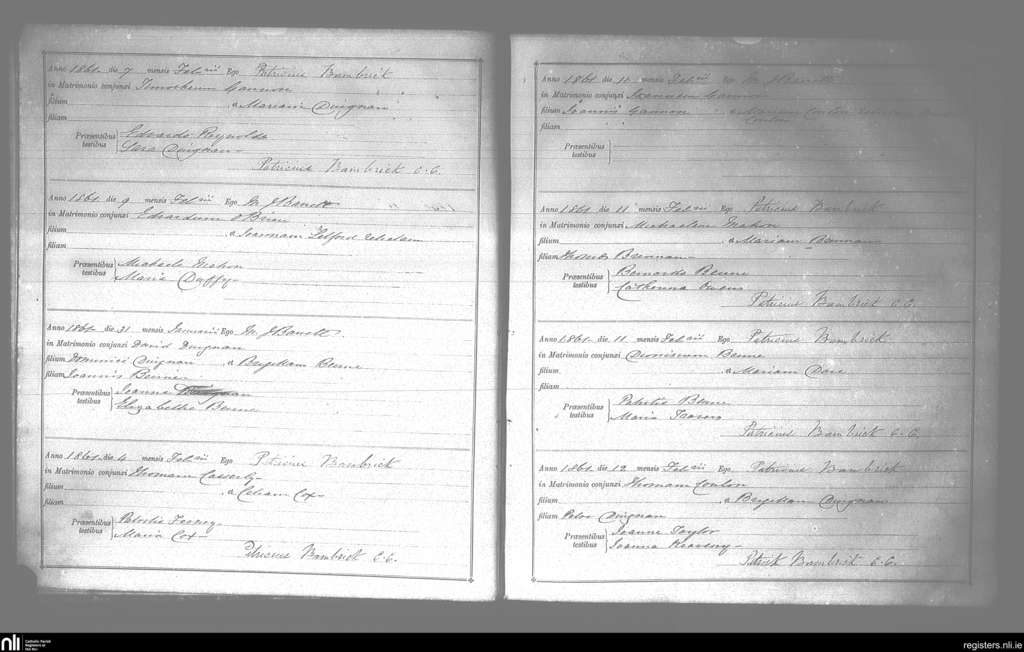 Anno 1861. die 7 mensis Feb.rii Ego Patricius Bambrick
in Matrimonio conjunxi Timotheum Gannon
filium a Mariam Duignan
filiam
Præsentibus testibus Edvardo Reynolds
Sara Duignan
Patricius Bambrick C.C.
Anno 1861. die 9 mensis Feb.rii Ego M. J. Barrett
in Matrimonio conjunxi Edvardum O'Brien
filium a Joannam Telford
filiam
Præsentibus testibus Michaele Mahon
Maria Duffy
Anno 1861. die 31 mensis Januarii Ego M. J. Barrett
in Matrimonio conjunxi David Duignan
filium Duignan a Brigittam Beirne
filiam Joannis Beirne
Præsentibus testibus Joanne
Elizabetha Beirne
Anno 1861. die 4 mensis Feb.rii Ego Patricius Bambrick
in Matrimonio conjunxi Thomam Casserly
filium a Celiam Cox
filiam
Præsentibus testibus Patritio
Maria Cox
Patricius Bambrick C.C.
Anno 1861 die 11 mensis Feb.rii Ego M. J. Barrett
in Matrimonio conjunxi Joannem Gannon
filium Joannis Gannon a Mariam Conlon
filiam Conlon
Præsentibus testibus
Anno 1861 die 11 mensis Feb.rii Ego Patricius Bambrick
in Matrimonio conjunxi Michaelem Mahon
filium a Mariam Brennan
filiam Brennan
Præsentibus testibus Bernardo Beirne
Catherina Owens
Patricius Bambrick C.C.
Anno 1861. die 11 mensis Feb.rii Ego Patricius Bambrick
in Matrimonio conjunxi Dionisium Beirne
filium a Mariam
filiam
Præsentibus testibus Patritio Beirne
Maria
Patricius Bambrick C.C.
Anno 1861 die 12 mensis Feb.rii Ego Patricius Bambrick
in Matrimonio conjunxi Thomam Conlon
filium a Brigittam Duignan
filiam Petri Duignan
Præsentibus testibus Joanne Taylor
Joanna
Patrick Bambrick C.C.
nli Catholic Parish
Registers at
the NLI
registers.nli.ie